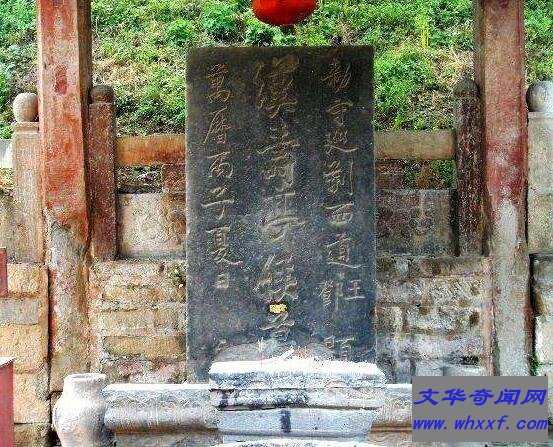 勅守巡荆西道汪鄧題
漢壽亭侯墓
萬曆丙子夏日
文华奇闻网
www.whxxf.com